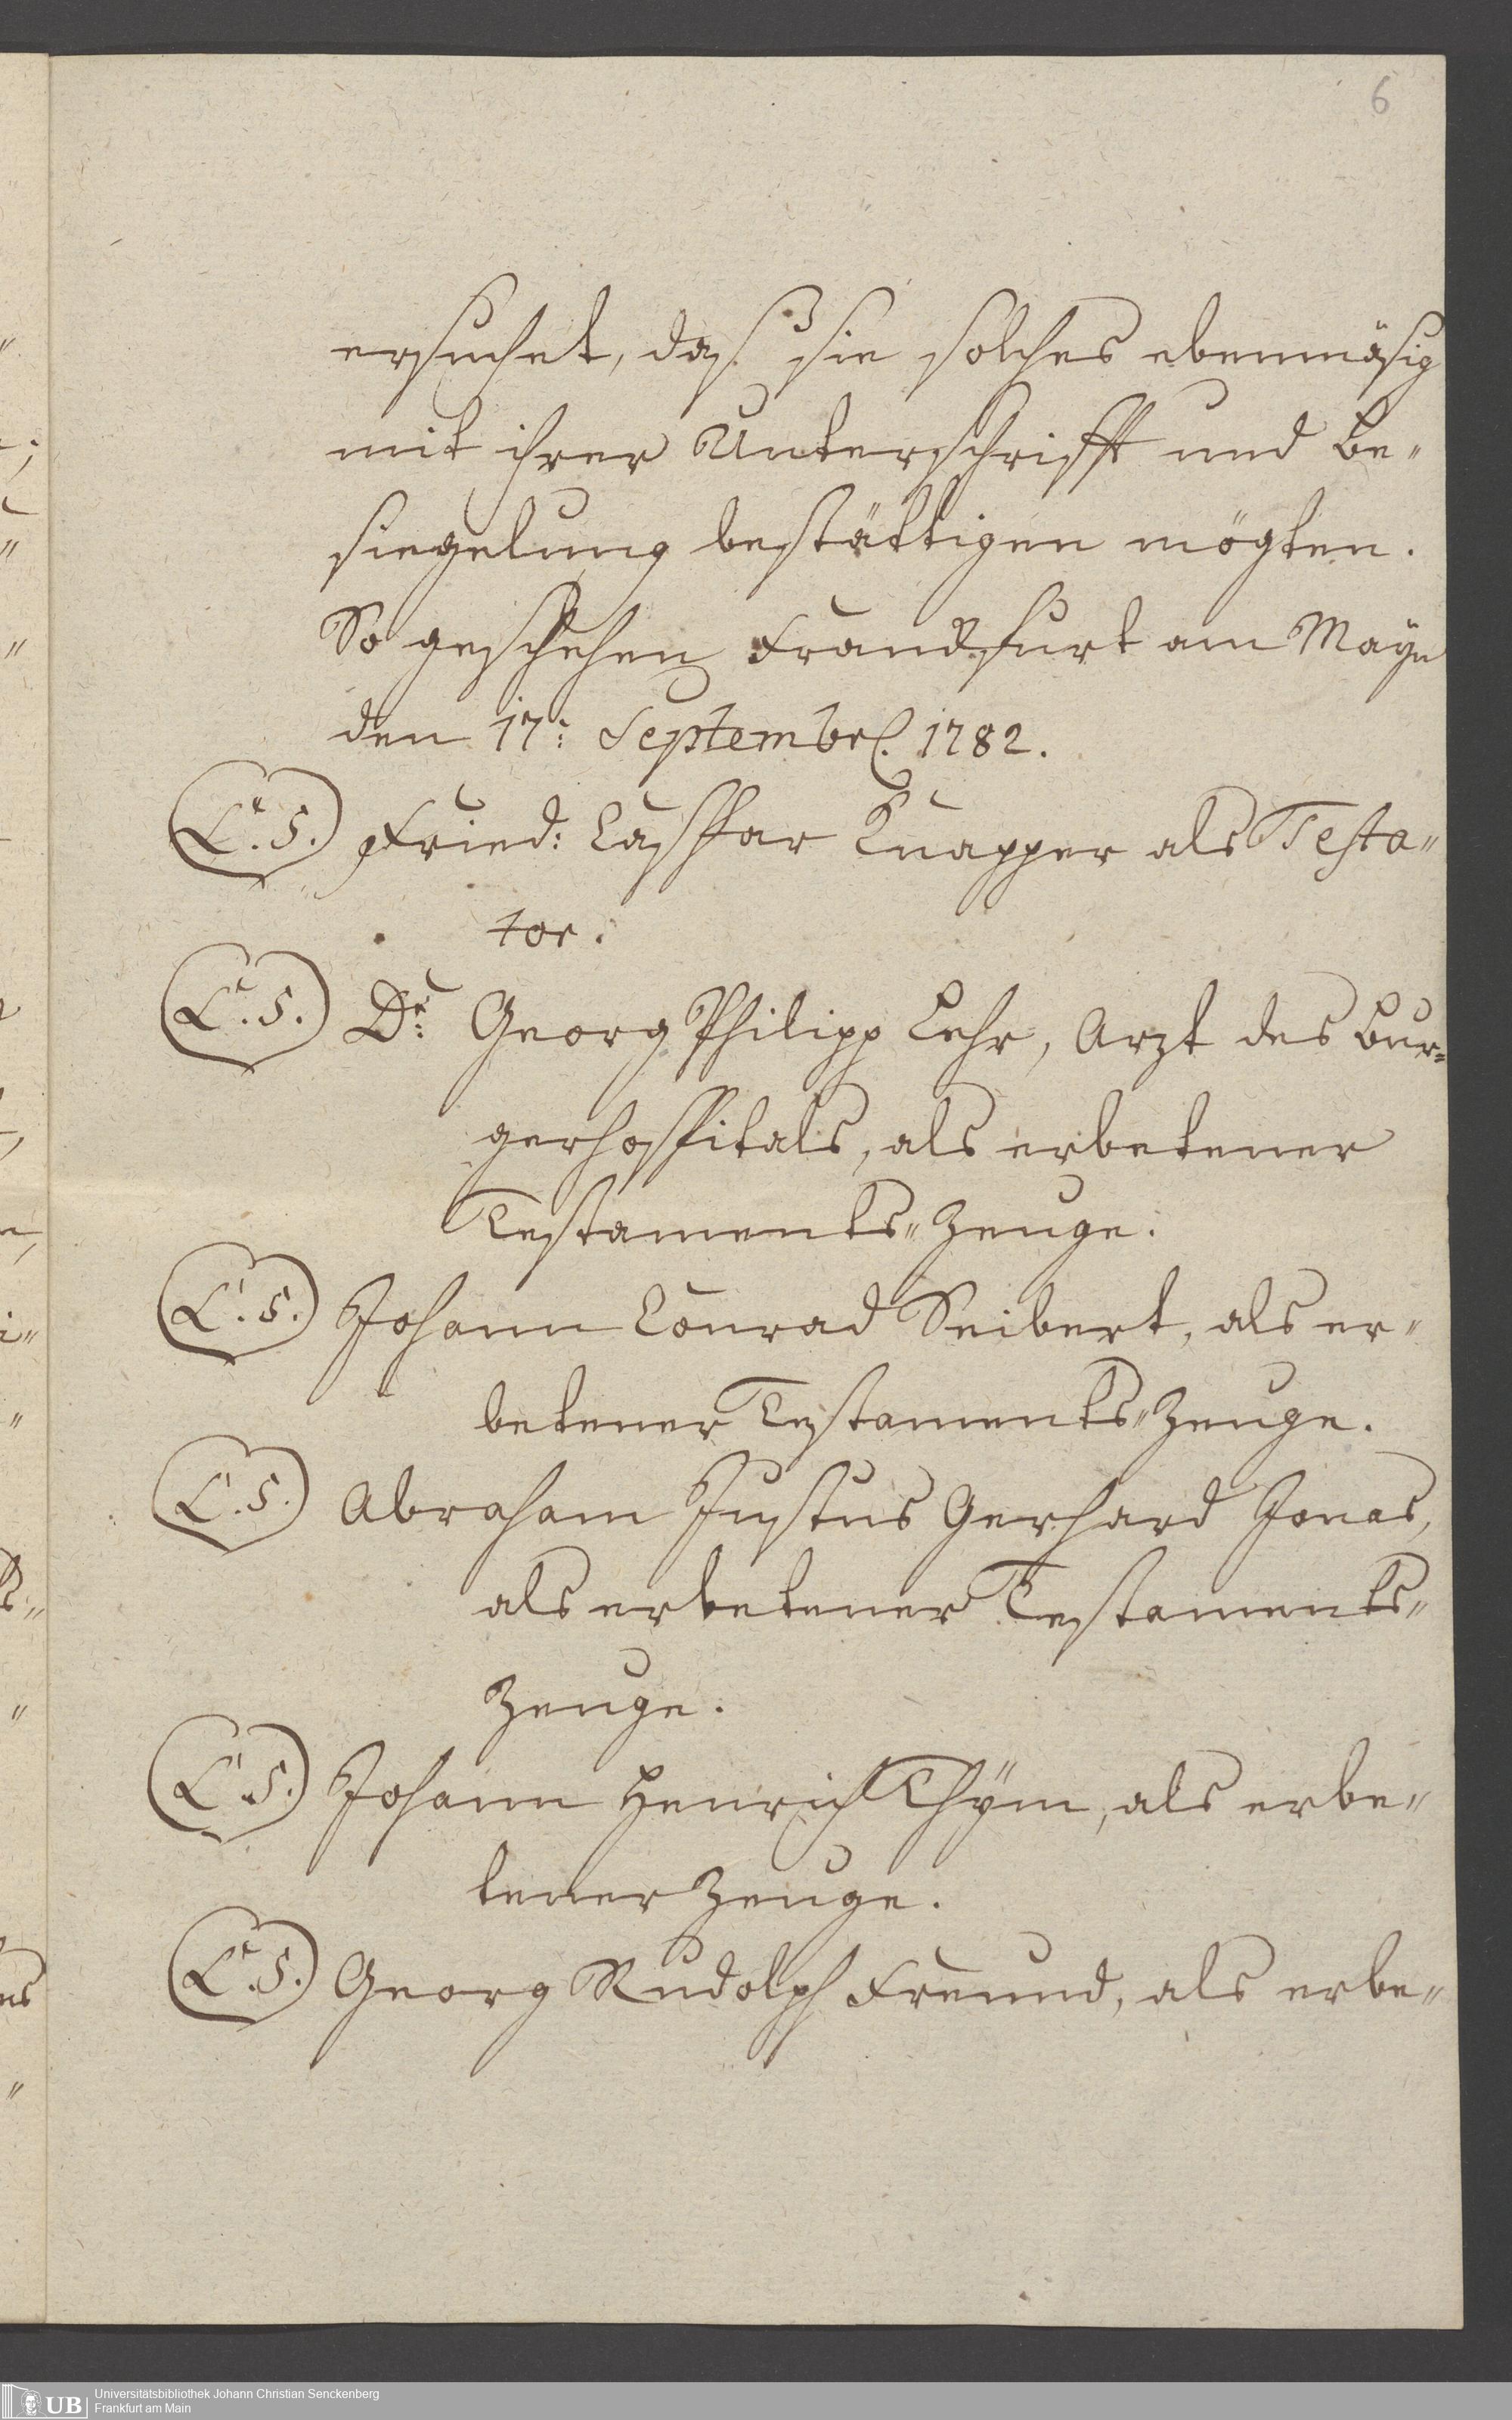 6
ersuchet, daß sie solches ebenmäsig
mit ihrer Unterschrifft und Be„
siegelung bestättigen mögten.
So geschehen Franckfurt am Mayn
den 17: Septembr. 1782.
L. S. Fried: Casspar Knapper als Testa„
tor.
L. S. Dr: Georg Philipp Lehr, Arzt des Bur=
gerhosspitals, als erbetener
Testaments„Zeuge.
L. S. Johann Conrad Seibert, als er„
betener Testaments„Zeuge.
L. S. Abraham Justus Gerhard Jonas,
als erbetener Testaments„
Zeuge.
L. S. Johann Henrich Thÿm, als erbe„
tener Zeuge.
L. S. Georg Rudolph Freund, als erbe„
UB Universitätsbibliothek Johann Christian Senckenberg
Frankfurt am Main